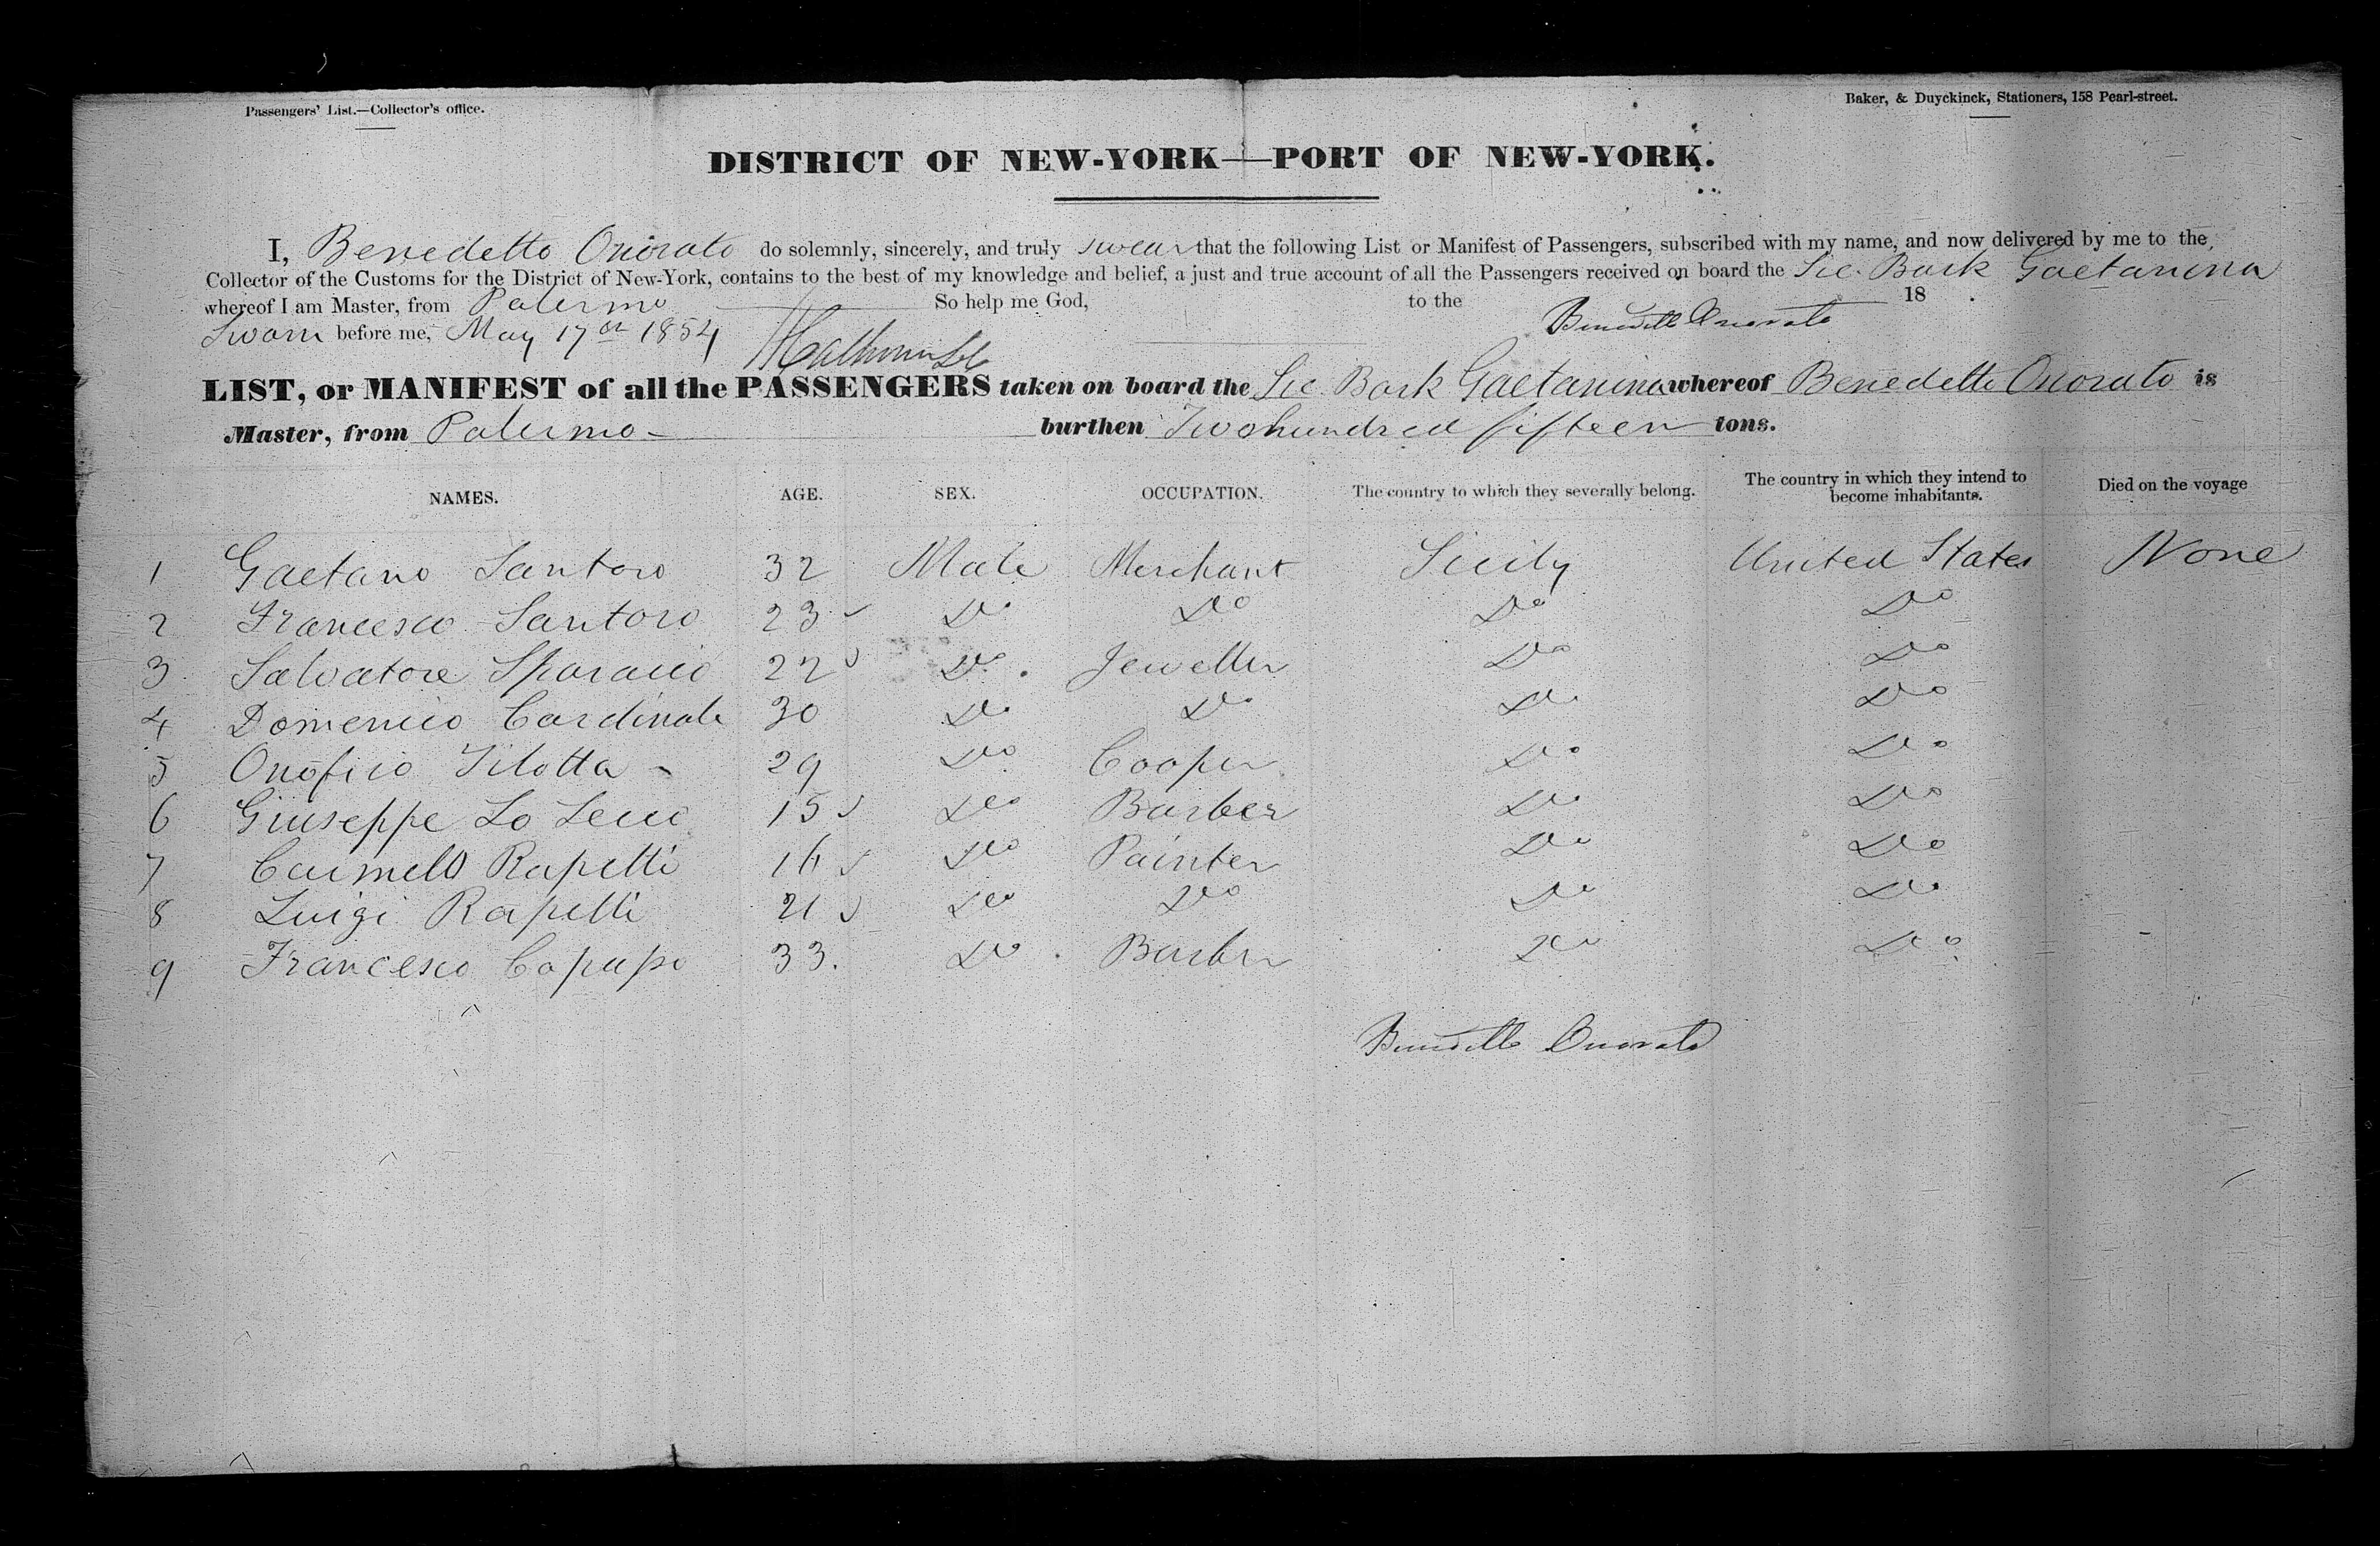 Passengers' List.—Collector's office.
Baker, & Duyckinck, Stationers, 158 Pearl-street.
DISTRICT OF NEW-YORK—PORT OF NEW-YORK.
I, Benedetto Onorato do solemnly, sincerely, and truly swear that the following List or Manifest of Passengers, subscribed with my name, and now delivered by me to the
Collector of the Customs for the District of New-York, contains to the best of my knowledge and belief, a just and true account of all the Passengers received on board the Sic. Bark Gaetanina
whereof I am Master, from Palermo So help me God, to the 18
Sworn before me, May 17th 1854 Benedetto Onorato
LIST, or MANIFEST of all the PASSENGERS taken on board the Sic. Bark Gaetanina whereof Benedetto Onorato is
Master, from Palermo — burthen Two hundred fifteen tons.
NAMES. AGE. SEX. OCCUPATION. The country to which they severally belong. The country in which they intend to become inhabitants. Died on the voyage
1 Gaetano Santoro 32 Male Merchant Sicily United States None
2 Francesco Santoro 23 Do Do Do Do
3 Salvatore Sparacio 22 Do Jeweller Do Do
4 Domenico Cardinale 30 Do Do Do Do
5 Onofrio Tilotta 29 Do Cooper Do Do
6 Giuseppe Lo 15 Do Barber Do Do
7 Carmelo Rapetti 16 Do Painter Do Do
8 Luigi Rapetti 21 Do Do Do Do
9 Francesco 33. Do Barber Do Do
Benedetto Onorato